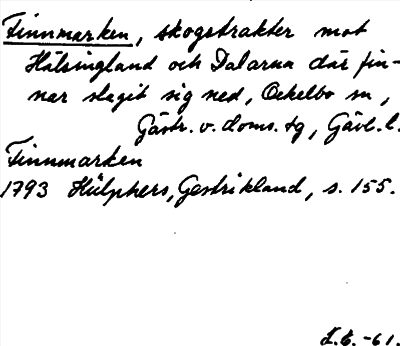 Finnmarken, skogstrakter mot
Hälsingland och Dalarna där fin-
nar slagit sig ned, Ockelbo sn,
Gästr. v. doms. tg, Gävl. l.
Finnmarken
1793 Hülphers, Gestrikland, s. 155.
L.E. -61.